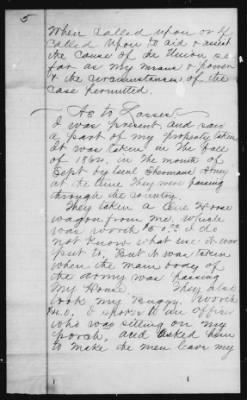 5
When called upon or if
called upon to aid & assist
the cause of the Union so
far as my means & power
& the circumstances of the
case permitted.
As to Losses
I was present and saw
a part of my property taken
it was taken in the Fall
of 1864, in the month of
Sept by Genl Shermans Army
at the time they were passing
through the country.
They taken a One Horse
wagon from me. Which
was worth I do
not know what use it was
put to. But it was taken
when the main body of
the army was passing
My House. They also
took my Buggy. Worth
I spoke to an officer
who was sitting on my
porch, and asked him
to make the men leave my